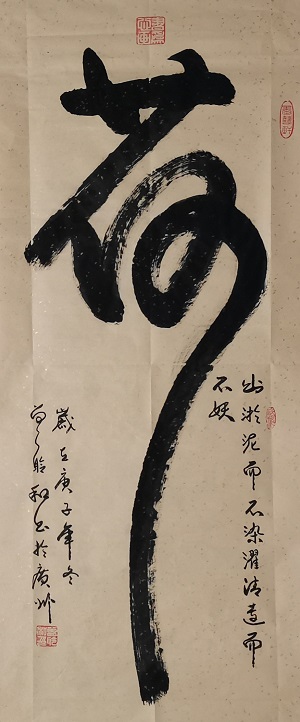 荷
出淤泥而不染濯清莲而
不妖
歲在庚子年冬
書於廣州